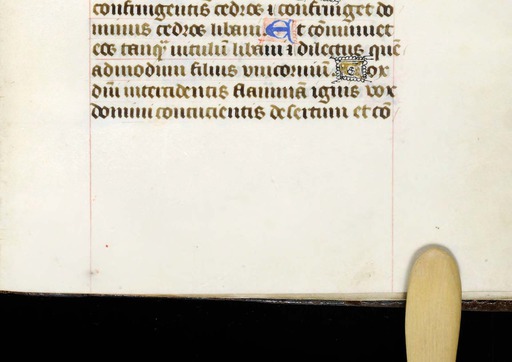 confringentis cedros ⁊ confringet do
minus cedros libani Et cōminuet
eos tanqͣ vitulū libani ⁊ dilectus quē
admodum filius vnicorniū Vox
dn̄i intercidentis flammā ignis vox
domini concucientis desertum et cō